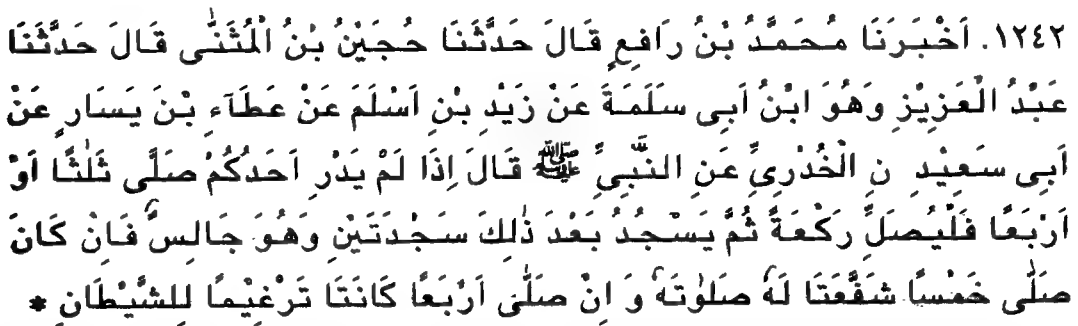 ١٢٤٢. اَخْبَرَنَا مُحَمَّدُ بْنُ رَافِعٍ قَالَ حَدَّثَنَا حُجَيْنُ بْنُ الْمُثَنّٰى قَالَ حَدَّثَنَا
عَبْدُ الْعَزِيْزِ وَهُوَ ابْنُ اَبِى سَلَمَةَ عَنْ زَيْدِ بْنِ اَسْلَمَ عَنْ عَطَآءِ بْنَ يَسَارٍ عَنْ
اَبِى سَعِيْدِ نِ الْخُدْرِىِّ عَنِ النَّبِىِّ ﷺ قَالَ اِذَا لَمْ يَدْرِ اَحَدُكُمْ صَلّٰى ثَلٰثًا اَوْ
اَرْبَعًا فَلْيُصَلِّ رَكْعَةً ثُمَّ يَسْجُدُ بَعْدَ ذٰلِكَ سَجْدَتَيْنِ وَهُوَ جَالِسٌ فَاِنْ كَانَ
صَلّٰى خَمْسًا شَفَّعَتَا لَهٗ صَلٰوتَهٗ وَ اِنْ صَلّٰى اَرْبَعًا كَانَتَا تَرْغِيْمًا لِلشَّيْطَانِ *